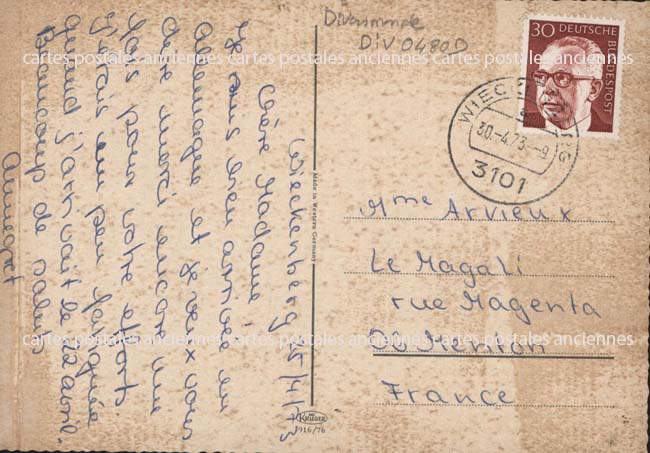 Wieckenberg 25/4/73
Chère Madame
Je suis bien arrivée en
Allemagne et je veux vous
dire merci encore une
fois pour votre efforts
J'étais un peu fatiguée
quand j'arrivait le 22 avril.
Beaucoup de saluts
Annegret
DIV 0480D
30 DEUTSCHE
BUNDESPOST
30.-4.73.-9
3101
Made in Western Germany
Mme Arvieux
Le Magali
rue Magenta
06 Menton
France
KRÜGER
916/76
cartes postales anciennes cartes postales anciennes cartes postales anciennes
cartes postales anciennes cartes postales anciennes cartes postales anciennes